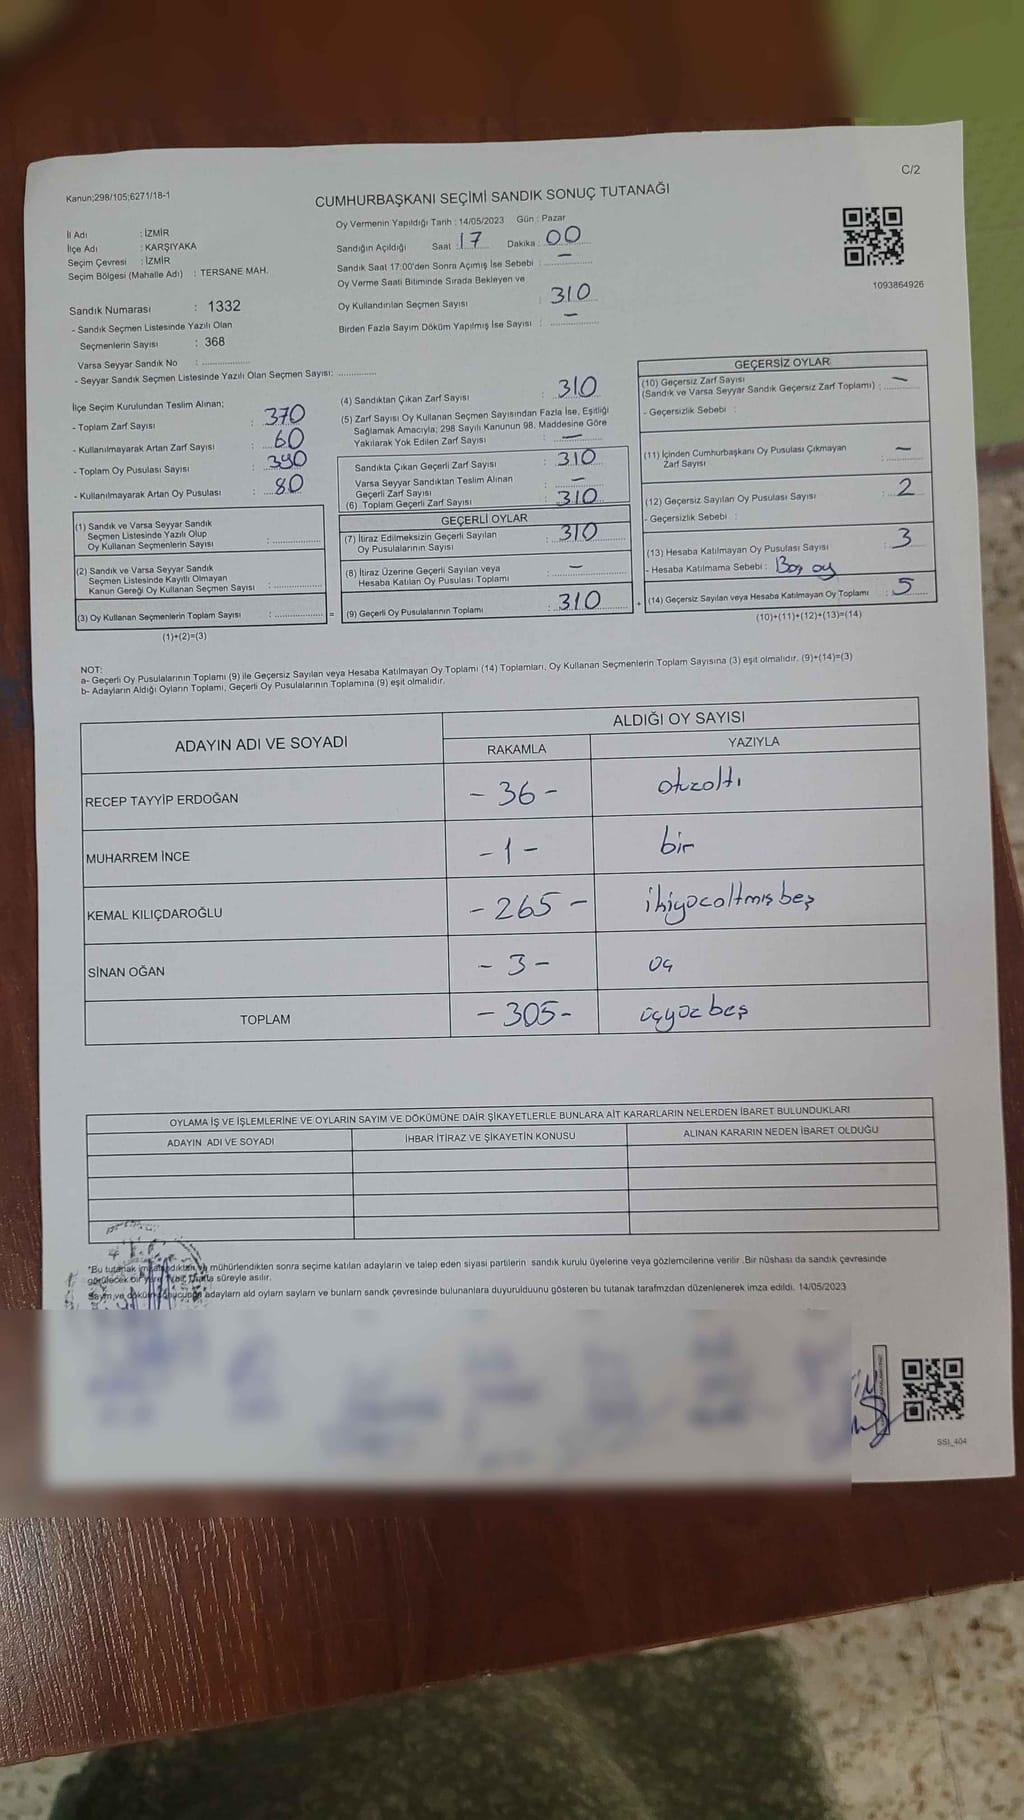 C/2
Kanun;298/105;6271/18-1
CUMHURBAŞKANI SEÇİMİ SANDIK SONUÇ TUTANAĞI
İl Adı : İZMİR
İlçe Adı : KARŞIYAKA
Seçim Çevresi : İZMİR
Seçim Bölgesi (Mahalle Adı) : TERSANE MAH.
Oy Vermenin Yapıldığı Tarih : 14/05/2023 Gün : Pazar
Sandığın Açıldığı Saat : 17 Dakika : 00
Sandık Saat 17:00'den Sonra Açımış İse Sebebi : –
Oy Verme Saati Bitiminde Sırada Bekleyen ve
Oy Kullandırılan Seçmen Sayısı : 310
Birden Fazla Sayım Döküm Yapılmış İse Sayısı : –
1093864926
Sandık Numarası : 1332
- Sandık Seçmen Listesinde Yazılı Olan
Seçmenlerin Sayısı : 368
Varsa Seyyar Sandık No : ..............
- Seyyar Sandık Seçmen Listesinde Yazılı Olan Seçmen Sayısı: ..............
İlçe Seçim Kurulundan Teslim Alınan;
- Toplam Zarf Sayısı : 370
- Kullanılmayarak Artan Zarf Sayısı : 60
- Toplam Oy Pusulası Sayısı : 390
- Kullanılmayarak Artan Oy Pusulası : 80
(1) Sandık ve Varsa Seyyar Sandık
Seçmen Listesinde Yazılı Olup
Oy Kullanan Seçmenlerin Sayısı : ..............
(2) Sandık ve Varsa Seyyar Sandık
Seçmen Listesinde Kayıtlı Olmayan
Kanun Gereği Oy Kullanan Seçmen Sayısı : ..............
(3) Oy Kullanan Seçmenlerin Toplam Sayısı : .............. =
(1)+(2)=(3)
(4) Sandıktan Çıkan Zarf Sayısı : 310
(5) Zarf Sayısı Oy Kullanan Seçmen Sayısından Fazla İse, Eşitliği
Sağlamak Amacıyla; 298 Sayılı Kanunun 98. Maddesine Göre
Yakılarak Yok Edilen Zarf Sayısı : –
Sandıkta Çıkan Geçerli Zarf Sayısı : 310
Varsa Seyyar Sandıktan Teslim Alınan
Geçerli Zarf Sayısı : –
(6) Toplam Geçerli Zarf Sayısı : 310
GEÇERLİ OYLAR
(7) İtiraz Edilmeksizin Geçerli Sayılan
Oy Pusulalarının Sayısı : 310
(8) İtiraz Üzerine Geçerli Sayılan veya
Hesaba Katılan Oy Pusulası Toplamı : –
(9) Geçerli Oy Pusulalarının Toplamı : 310 +
GEÇERSİZ OYLAR
(10) Geçersiz Zarf Sayısı
(Sandık ve Varsa Seyyar Sandık Geçersiz Zarf Toplamı) : –
- Geçersizlik Sebebi :
(11) İçinden Cumhurbaşkanı Oy Pusulası Çıkmayan
Zarf Sayısı : –
(12) Geçersiz Sayılan Oy Pusulası Sayısı : 2
- Geçersizlik Sebebi :
(13) Hesaba Katılmayan Oy Pusulası Sayısı : 3
- Hesaba Katılmama Sebebi : Boş oy
(14) Geçersiz Sayılan veya Hesaba Katılmayan Oy Toplamı : 5
(10)+(11)+(12)+(13)=(14)
NOT:
a- Geçerli Oy Pusulalarının Toplamı (9) ile Geçersiz Sayılan veya Hesaba Katılmayan Oy Toplamı (14) Toplamları, Oy Kullanan Seçmenlerin Toplam Sayısına (3) eşit olmalıdır. (9)+(14)=(3)
b- Adayların Aldığı Oyların Toplamı, Geçerli Oy Pusulalarının Toplamına (9) eşit olmalıdır.
ADAYIN ADI VE SOYADI
ALDIĞI OY SAYISI
RAKAMLA YAZIYLA
RECEP TAYYİP ERDOĞAN - 36 - otuzaltı
MUHARREM İNCE - 1 - bir
KEMAL KILIÇDAROĞLU - 265 - ikiyüzaltmışbeş
SİNAN OĞAN - 3 - üç
TOPLAM - 305 - üçyüzbeş
OYLAMA İŞ VE İŞLEMLERİNE VE OYLARIN SAYIM VE DÖKÜMÜNE DAİR ŞİKAYETLERLE BUNLARA AİT KARARLARIN NELERDEN İBARET BULUNDUKLARI
ADAYIN ADI VE SOYADI İHBAR İTİRAZ VE ŞİKAYETİN KONUSU ALINAN KARARIN NEDEN İBARET OLDUĞU
*Bu tutanak mühürlendikten sonra seçime katılan adayların ve talep eden siyasi partilerin sandık kurulu üyelerine veya gözlemcilerine verilir .Bir nüshası da sandık çevresinde
süreyle asılır.
adayların ald oyların sayların ve bunların sandk çevresinde bulunanlara duyurulduunu gösteren bu tutanak tarafmzdan düzenlenerek imza edildi. 14/05/2023
SSI_404